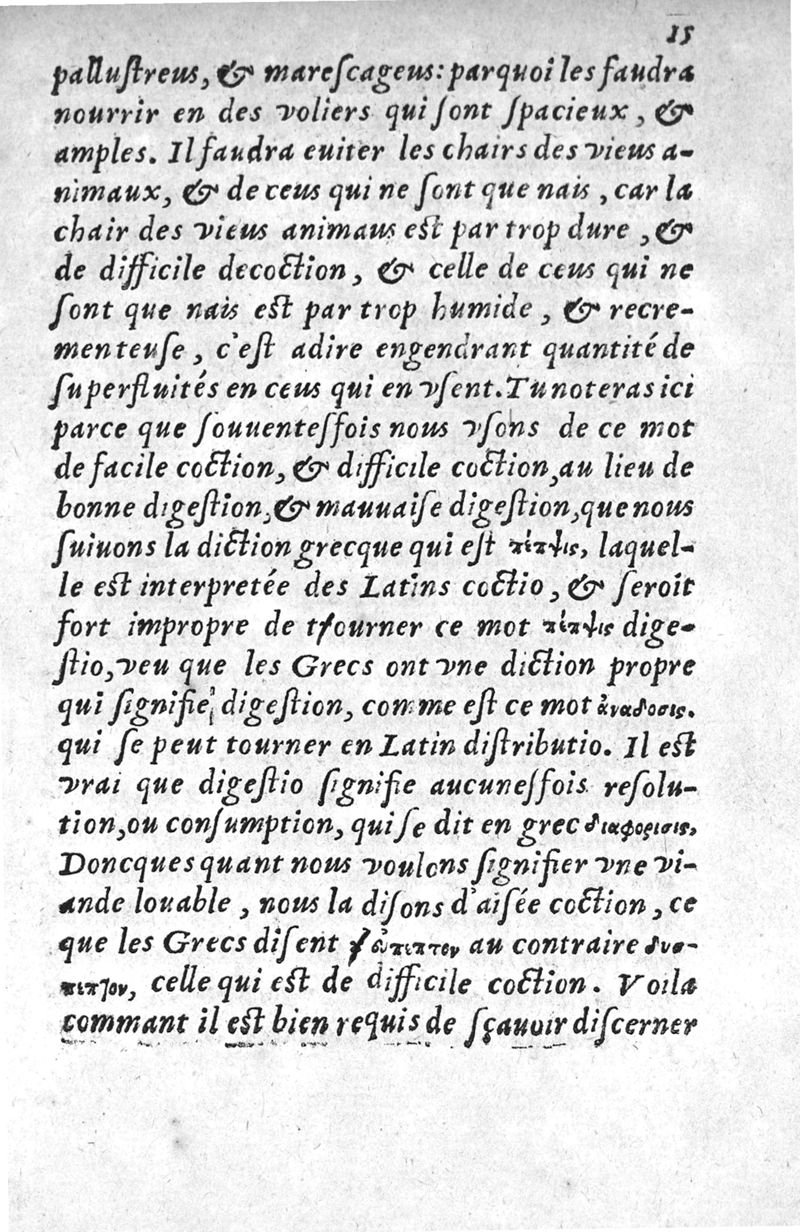 15
palluſtreus, & mareſcageus: parquoi les faudra
nourrir en des voliers qui ſont ſpacieux, &
amples. Il faudra euiter les chairs des vieus a-
nimaux, & de ceus qui ne ſont que nais, car la
chair des vieus animaus eſt par trop dure, &
de difficile decoction, & celle de ceus qui ne
ſont que nais eſt par trop humide, & recre-
menteuſe, c'eſt adire engendrant quantité de
ſuperfluités en ceus qui en vſent. Tu noteras ici
parce que ſouuenteſfois nous vſons de ce mot
de facile coction, & difficile coction, au lieu de
bonne digeſtion, & mauuaiſe digeſtion, que nous
ſuiuons la diction grecque qui eſt πέπψις, laquel-
le eſt interpretée des Latins coctio, & ſeroit
fort impropre de tſourner ce mot πέπψις dige-
ſtio, veu que les Grecs ont vne diction propre
qui ſignifie digeſtion, comme eſt ce mot ἀναδοσις.
qui ſe peut tourner en Latin diſtributio. Il eſt
vrai que digeſtio ſignifie aucuneſfois reſolu-
tion, ou conſumption, qui ſe dit en grec διαφορισις,
Doncques quant nous voulons ſignifier vne vi-
ande louable, nous la diſons d'aiſée coction, ce
que les Grecs diſent ἐυπεπτον au contraire δυσ-
πεπτον, celle qui eſt de difficile coction. Voila
commant il eſt bien requis de ſçauoir diſcerner